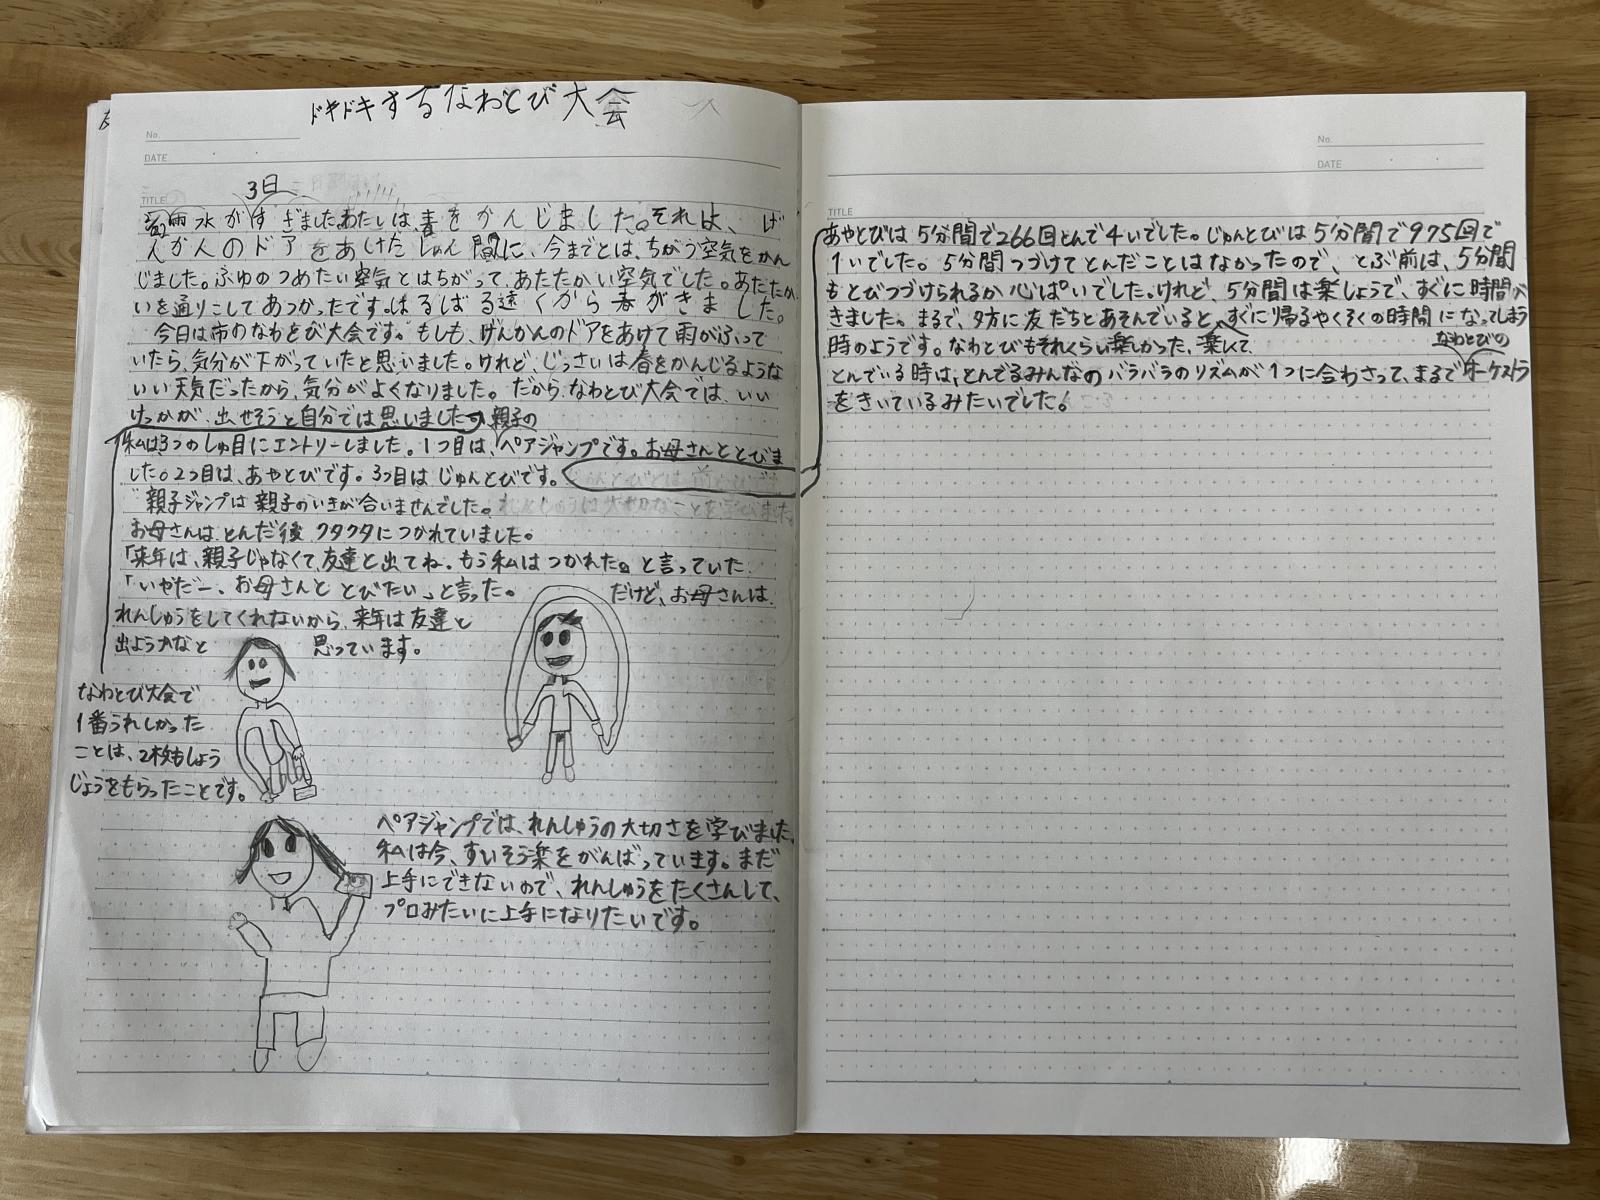 ドキドキするなわとび大会
No.
DATE
3日
TITLE
雨水がすぎました。わたしは、春をかんじました。それは、げ
んかんのドアをあけたしゅん間に、今までとは、ちがう空気をかん
じました。ふゆのつめたい空気とはちがって、あたたかい空気でした。あたたか
いを通りこしてあつかったです。はるばる遠くから春がきました。
今日は市のなわとび大会です。もしも、げんかんのドアをあけて雨がふって
いたら、気分が下がっていたと思いました。けれど、じっさいは春をかんじるような
いい天気だったから、気分がよくなりました。だから、なわとび大会では、いい
けっかが、出せそうと自分では思いました。
親子の
私は3つのしゅ目にエントリーしました。1つ目は、ペアジャンプです。お母さんととびま
した。2つ目は、あやとびです。3つ目はじゅんとびです。
親子ジャンプは親子のいきが合いませんでした。
お母さんは、とんだ後クタクタにつかれていました。
「来年は、親子じゃなくて、友達と出てね。もう私はつかれた。」と言っていた。
「いやだー、お母さんととびたい」と言った。
だけど、お母さんは、
れんしゅうをしてくれないから、来年は友達と
出ようかなと思っています。
なわとび大会で
1番うれしかった
ことは、2枚もしょう
じょうをもらったことです。
ペアジャンプでは、れんしゅうの大切さを学びました。
私は今、すいそう楽をがんばっています。まだ
上手にできないので、れんしゅうをたくさんして、
プロみたいに上手になりたいです。
No.
DATE
TITLE
あやとびは5分間で266回とんで4いでした。じゅんとびは5分間で975回で
1いでした。5分間つづけてとんだことはなかったので、とぶ前は、5分間
もとびつづけられるか心ぱいでした。けれど、5分間は楽しょうで、すぐに時間が
きました。まるで、夕方に友だちとあそんでいると、すぐに帰るやくそくの時間になってしまう
時のようです。なわとびもそれくらい楽しかった、楽しくて、
なわとびの
とんでいる時は、とんでるみんなのバラバラのリズムが1つに合わさって、まるでオーケストラ
をきいているみたいでした。